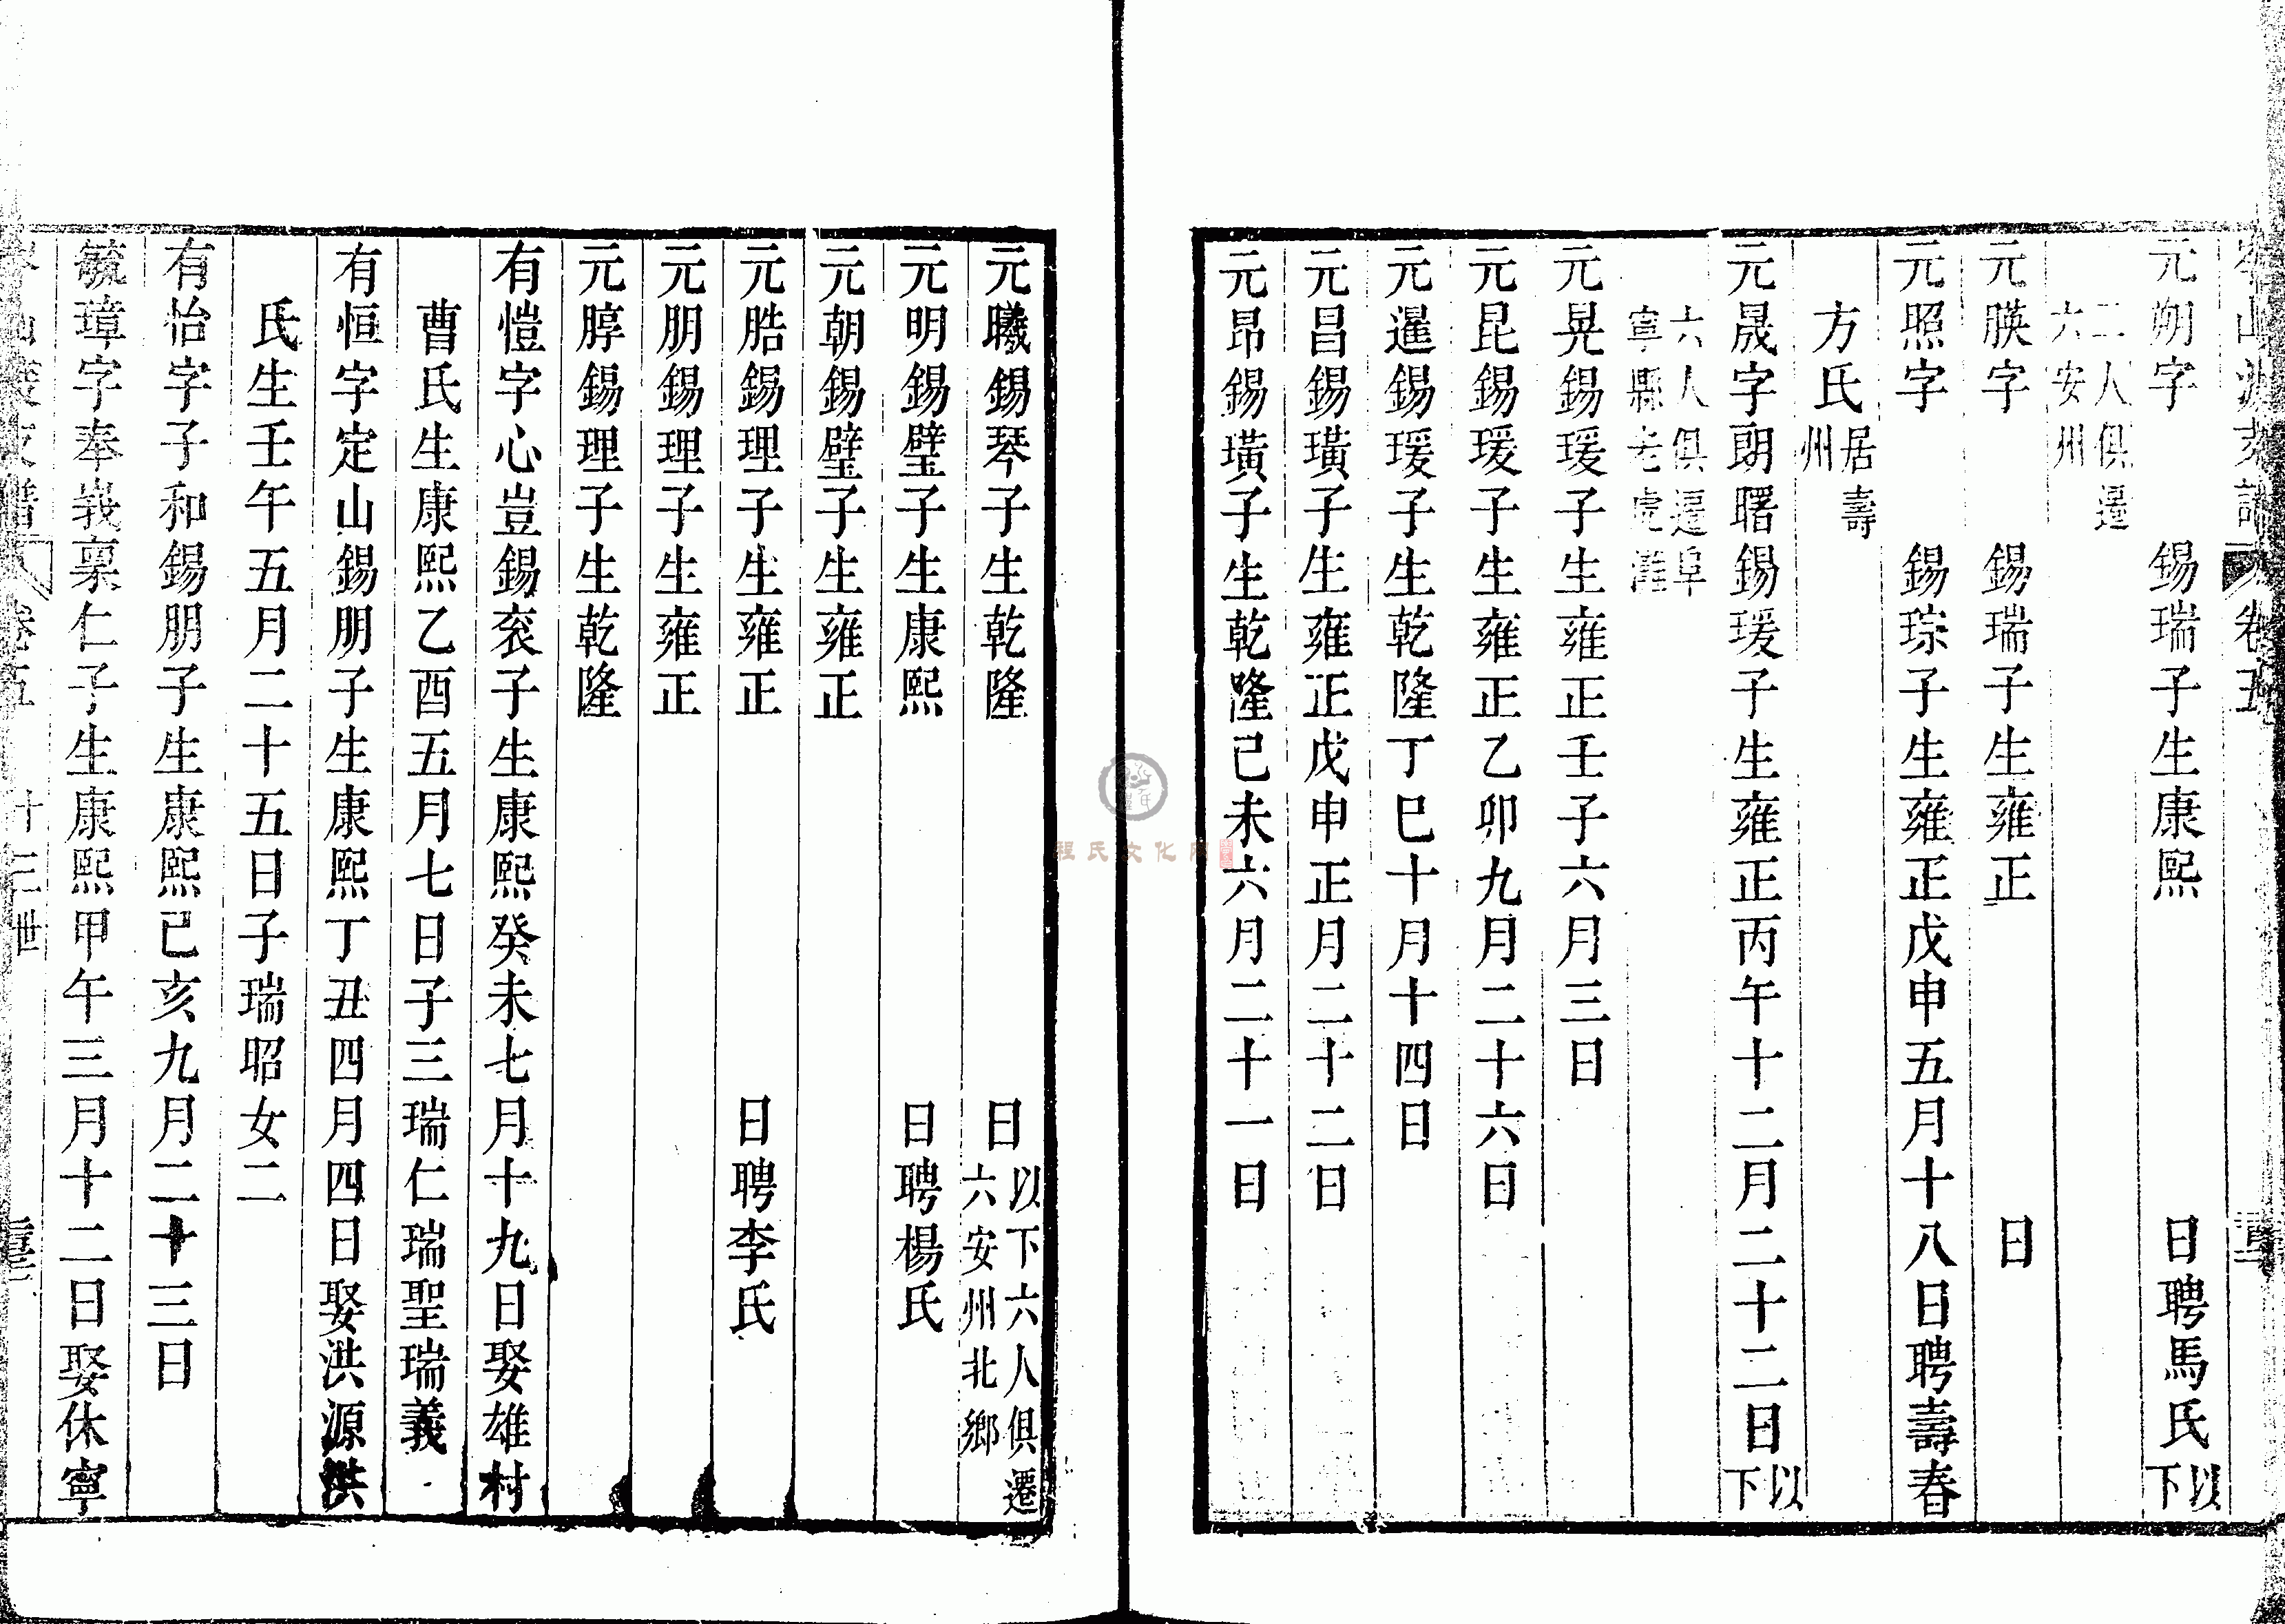 岑山渡支譜 卷五
元朔字 錫瑞子生康熙 日聘馬氏以下
二人俱遷六安州
元朠字 錫瑞子生雍正 日
元照字 錫琮子生雍正戊申五月十八日聘壽春
方氏居壽州
元晟字朗曙錫瑗子生雍正丙午十二月二十二日以下
六人俱遷阜寧縣老虎灘
元晃錫瑗子生雍正壬子六月三日
元昆錫瑗子生雍正乙卯九月二十六日
元暹錫瑗子生乾隆丁巳十月十四日
元昌錫璜子生雍正戊申正月二十二日
元昻錫璜子生乾隆己未六月二十一日
元曦錫琴子生乾隆 日以下六人俱遷六安州北鄉
元明錫璧子生康熙 日聘楊氏
元朝錫璧子生雍正
元晧錫理子生雍正 日聘李氏
元朋錫理子生雍正
元脝錫理子生乾隆
有愷字心豈錫袞子生康熙癸未七月十九日娶雄村
曹氏生康熙乙酉五月七日子三瑞仁瑞聖瑞義
有恒字定山錫朋子生康熙丁丑四月四日娶洪源洪
氏生壬午五月二十五日子瑞昭女二
有怡字子和錫朋子生康熙己亥九月二十三日
毓璋字奉峩稟仁子生康熙甲午三月十二日娶休寧
岑山渡支譜 卷五 十三世
程氏文化网